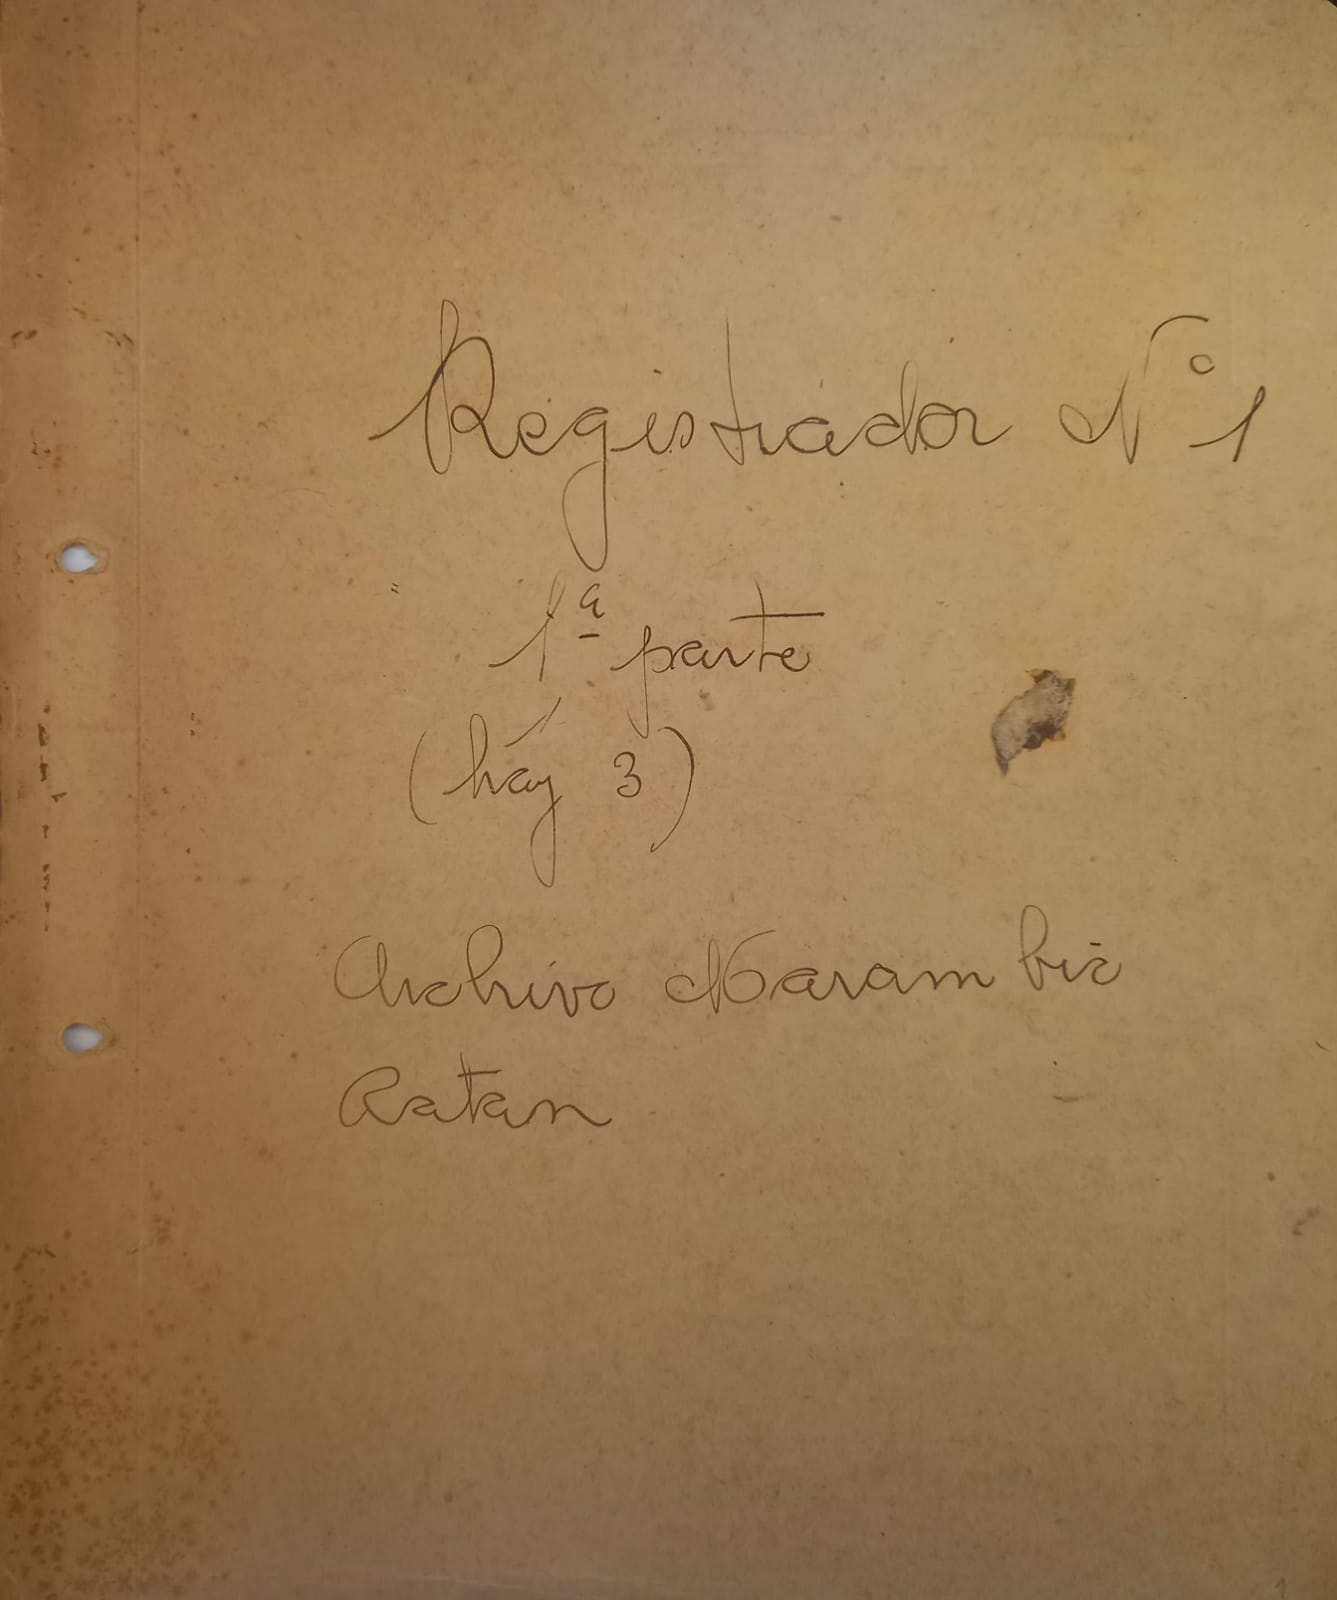 Registrador N° 1
1ª parte
(háy 3)
Archivo Marambio
Catan